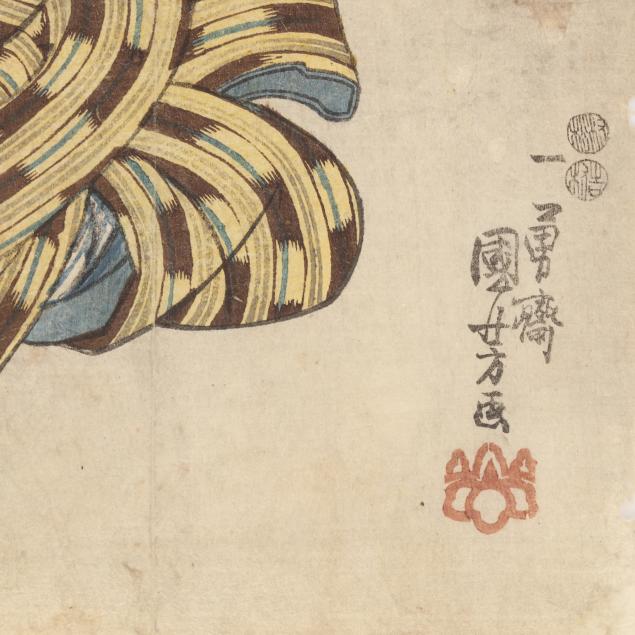 一勇齋
國芳画